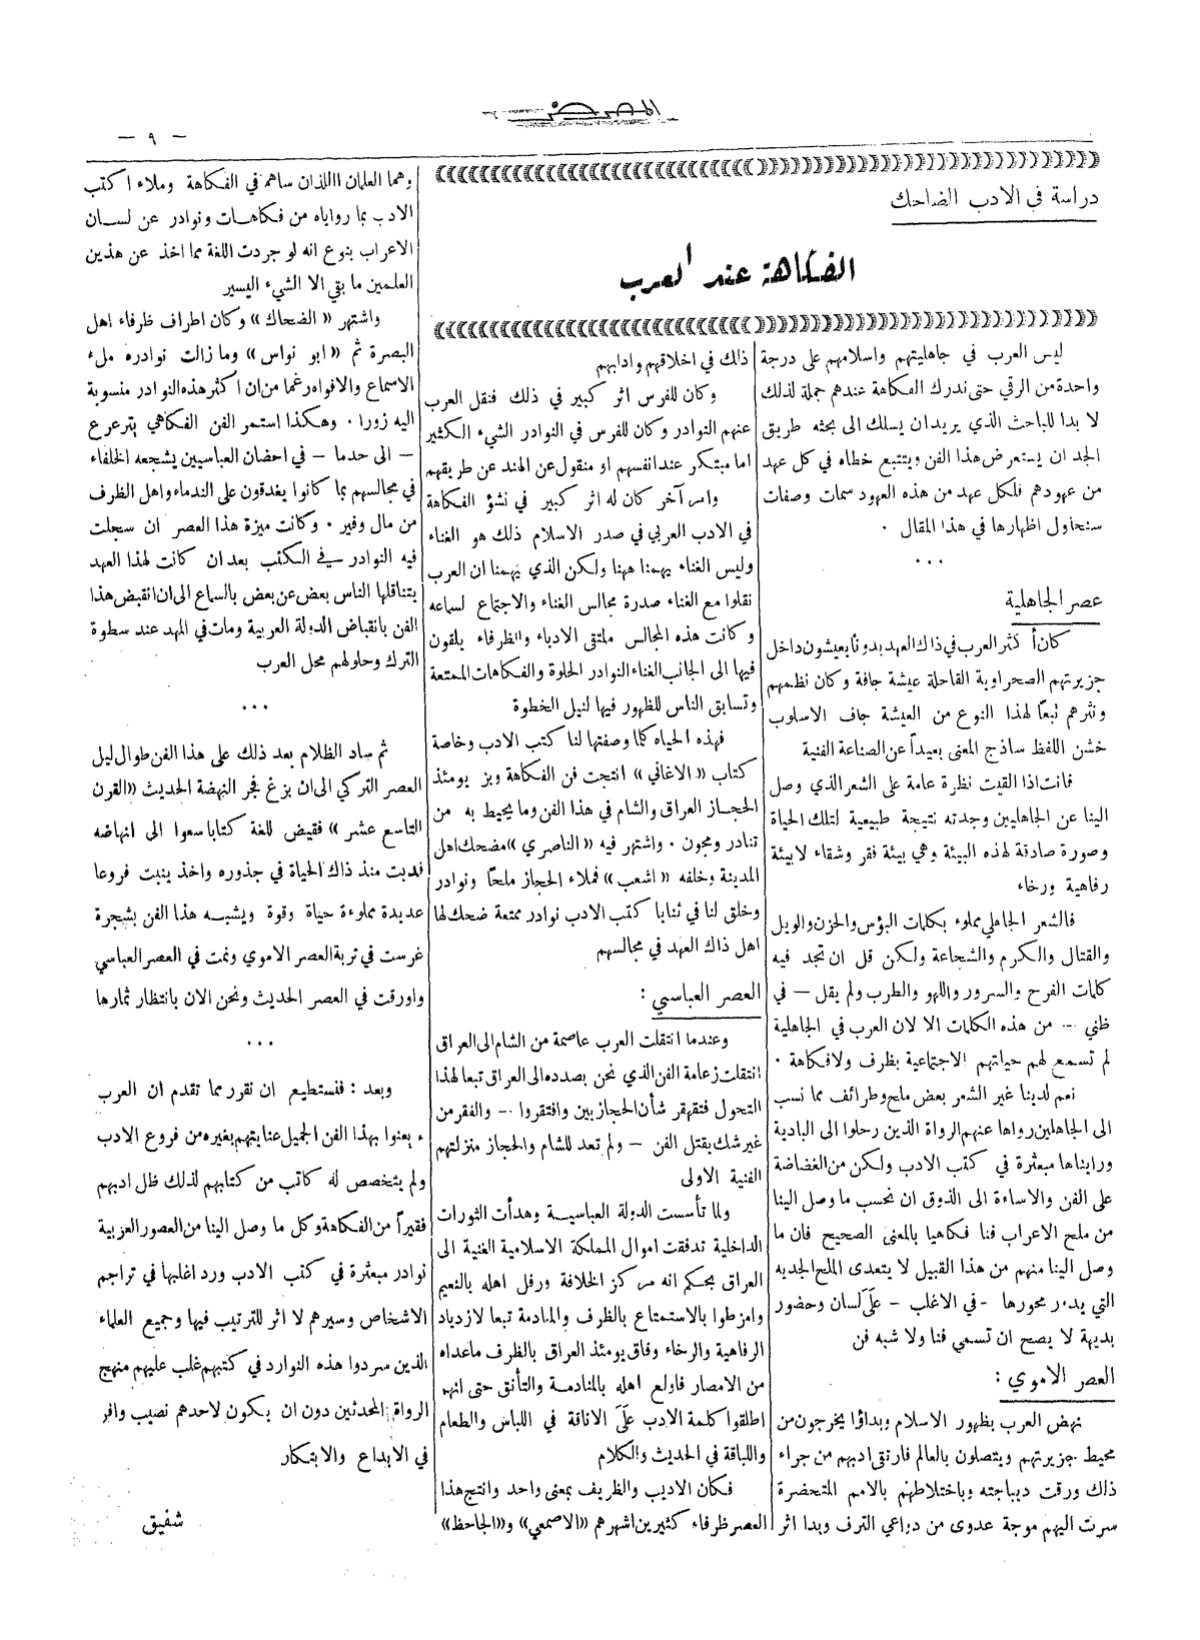 المعرض
— ٩ —
دراسة في الادب الضاحك
الفكاهة عند العرب
ليس العرب في جاهليتهم واسلامهم على درجة
واحدة من الرقي حتى ندرك الفكاهة عندهم جملة لذلك
لا بدا للباحث الذي يريد ان يسلك الى بحثه طريق
الجد ان يستعرض هذا الفن ويتتبع خطاه في كل عهد
من عهودهم فلكل عهد من هذه العهود سمات وصفات
سنحاول اظهارها في هذا المقال .
...
عصر الجاهلية
كان أكثر العرب في ذاك العهد بدوناً يعيشون داخل
جزيرتهم الصحراوية القاحلة عيشة جافة وكان نظمهم
ونثرهم تبعاً لهذا النوع من العيشة جاف الاسلوب
خشن اللفظ ساذج المعنى بعيداً عن الصناعة الفنية
فانت اذا القيت نظرة عامة على الشعر الذي وصل
الينا عن الجاهليين وجدته نتيجة طبيعية لتلك الحياة
وصورة صادقة لهذه البيئة وهي بيئة فقر وشقاء لا بيئة
رفاهية ورخاء
فالشعر الجاهلي مملوء بكلمات البؤس والحزن والويل
والقتال والكرم والشجاعة ولكن قل ان تجد فيه
كلمات الفرح والسرور واللهو والطرب ولم يقل — في
ظني — من هذه الكلمات الا لان العرب في الجاهلية
لم تسمع لهم حياتهم الاجتماعية بظرف ولا فكاهة .
نعم لدينا غير الشعر بعض ملح وطرائف مما نسب
الى الجاهلين رواها عنهم الرواة الذين رحلوا الى البادية
ورايناها مبعثرة في كتب الادب ولكن من الغضاضة
على الفن والاساءة الى الذوق ان نحسب ما وصل الينا
من ملح الاعراب فنا فكاهيا بالمعنى الصحيح فان ما
وصل الينا منهم من هذا القبيل لا يتعدى الملح الجديه
التي يدور محورها - في الاغلب - على لسان وحضور
بديهة لا يصح ان تسمي فنا ولا شبه فن
العصر الاموي :
نهض العرب بظهور الاسلام وبداؤا يخرجون من
محيط جزيرتهم ويتصلون بالعالم فارتقى ادبهم من جراء
ذلك ورقت ديباجته وباختلاطهم بالامم المتحضرة
سرت اليهم موجة عدوى من دواعي الترف وبدا اثر
ذالك في اخلاقهم وادابهم
وكان للفرس اثر كبير في ذلك فنقل العرب
عنهم النوادر وكان للفرس في النوادر الشيء الكثير
اما مبتكر عند انفسهم او منقول عن الهند عن طريقهم
وامر آخر كان له اثر كبير في نشؤ الفكاهة
في الادب العربي في صدر الاسلام ذلك هو الغناء
وليس الغناء يهمنا ههنا ولكن الذي يهمنا ان العرب
نقلوا مع الغناء صدرة مجالس الغناء والاجتماع لسماعه
وكانت هذه المجالس ملتقى الادباء والظرفاء يلقون
فيها الى الجانب الغناء النوادر الحلوة والفكاهات الممتعة
وتسابق الناس للظهور فيها لنيل الخطوة
فهذه الحياه كما وصفتها لنا كتب الادب وخاصة
كتاب «الاغاني» انتجت فن الفكاهة وبز يومئذ
الحجاز العراق والشام في هذا الفن وما يحيط به من
تنادر ومجون . واشتهر فيه «الناصري» مضحك اهل
المدينة وخلفه «اشعب» فملاء الحجاز ملحاً ونوادر
وخلق لنا في ثنايا كتب الادب نوادر ممتعة ضحك لها
اهل ذاك العهد في مجالسهم
العصر العباسي :
وعندما انتقلت العرب عاصمة من الشام الى العراق
انتقلت زعامة الفن الذي نحن بصدده الى العراق تبعا لهذا
التحول فتقهقر شأن الحجازيين وافتقروا — والفقر من
غير شك يقتل الفن — ولم تعد للشام والحجاز منزلتهم
الفنية الاولى
ولما تأسست الدولة العباسية وهدأت الثورات
الداخلية تدفقت اموال المملكة الاسلامية الغنية الى
العراق بحكم انه مركز الخلافة ورفل اهله بالنعيم
وامزطوا بالاستمتاع بالظرف والمنادمة تبعا لازدياد
الرفاهية والرخاء وفاق يومئذ العراق بالظرف ماعداه
من الامصار فاولع اهله بالمنادمة والتأنق حتى انهم
اطلقوا كلمة الادب على الاناقة في اللباس والطعام
واللباقة في الحديث والكلام
فكان الاديب والظريف بمعنى واحد وانتج هذا
العصر ظرفاء كثيرين اشهرهم «الاصمعي» و«الجاحظ»
وهما العلمان االلذان ساهم في الفكاهة وملاء اكتب
الادب بما روياه من فكاهات ونوادر عن لسان
الاعراب بنوع انه لو جردت اللغة مما اخذ عن هذين
العلمين ما بقي الا الشيء اليسير
واشتهر «الضحاك» وكان اطراف ظرفاء اهل
البصرة ثم «ابو نواس» وما زالت نوادره ملء
الاسماع والافواه رغما من ان اكثر هذه النوادر منسوبة
اليه زورا . وهكذا استمر الفن الفكاهي يترعرع
— الى حدما — في احضان العباسيين يشجعه الخلفاء
في مجالسهم بما كانوا يغدقون على الندماء واهل الظرف
من مال وفير . وكانت ميزة هذا العصر ان سجلت
فيه النوادر في الكتب بعد ان كانت لهذا العهد
يتناقلها الناس بعض عن بعض بالسماع الى ان انقبض هذا
الفن بانقباض الدولة العربية ومات في المهد عند سطوة
الترك وحلولهم محل العرب
...
ثم ساد الظلام بعد ذلك على هذا الفن طوال ليل
العصر التركي الى ان بزغ فجر النهضة الحديث «القرن
التاسع عشر» فقيض للغة كتابا سعوا الى انهاضه
فدبت منذ ذاك الحياة في جذوره واخذ ينبت فروعا
عديدة مملوءة حياة وقوة ويشبه هذا الفن بشجرة
غرست في تربة العصر الاموي ونمت في العصر العباسي
واورقت في العصر الحديث ونحن الان بانتظار ثمارها
...
وبعد : فنستطيع ان نقرر مما تقدم ان العرب
يعنوا بهذا الفن الجميل عنايتهم بغيره من فروع الادب
ولم يتخصص له كاتب من كتابهم لذلك ظل ادبهم
فقيراً من الفكاهة وكل ما وصل الينا من العصور العربية
نوادر مبعثرة في كتب الادب ورد اغلبها في تراجم
الاشخاص وسيرهم لا اثر للترتيب فيها وجميع العلماء
الذين سردوا هذه النوارد في كتبهم غلب عليهم منهج
الرواة المحدثين دون ان يكون لاحدهم نصيب وافر
في الابداع والابتكار
شفيق